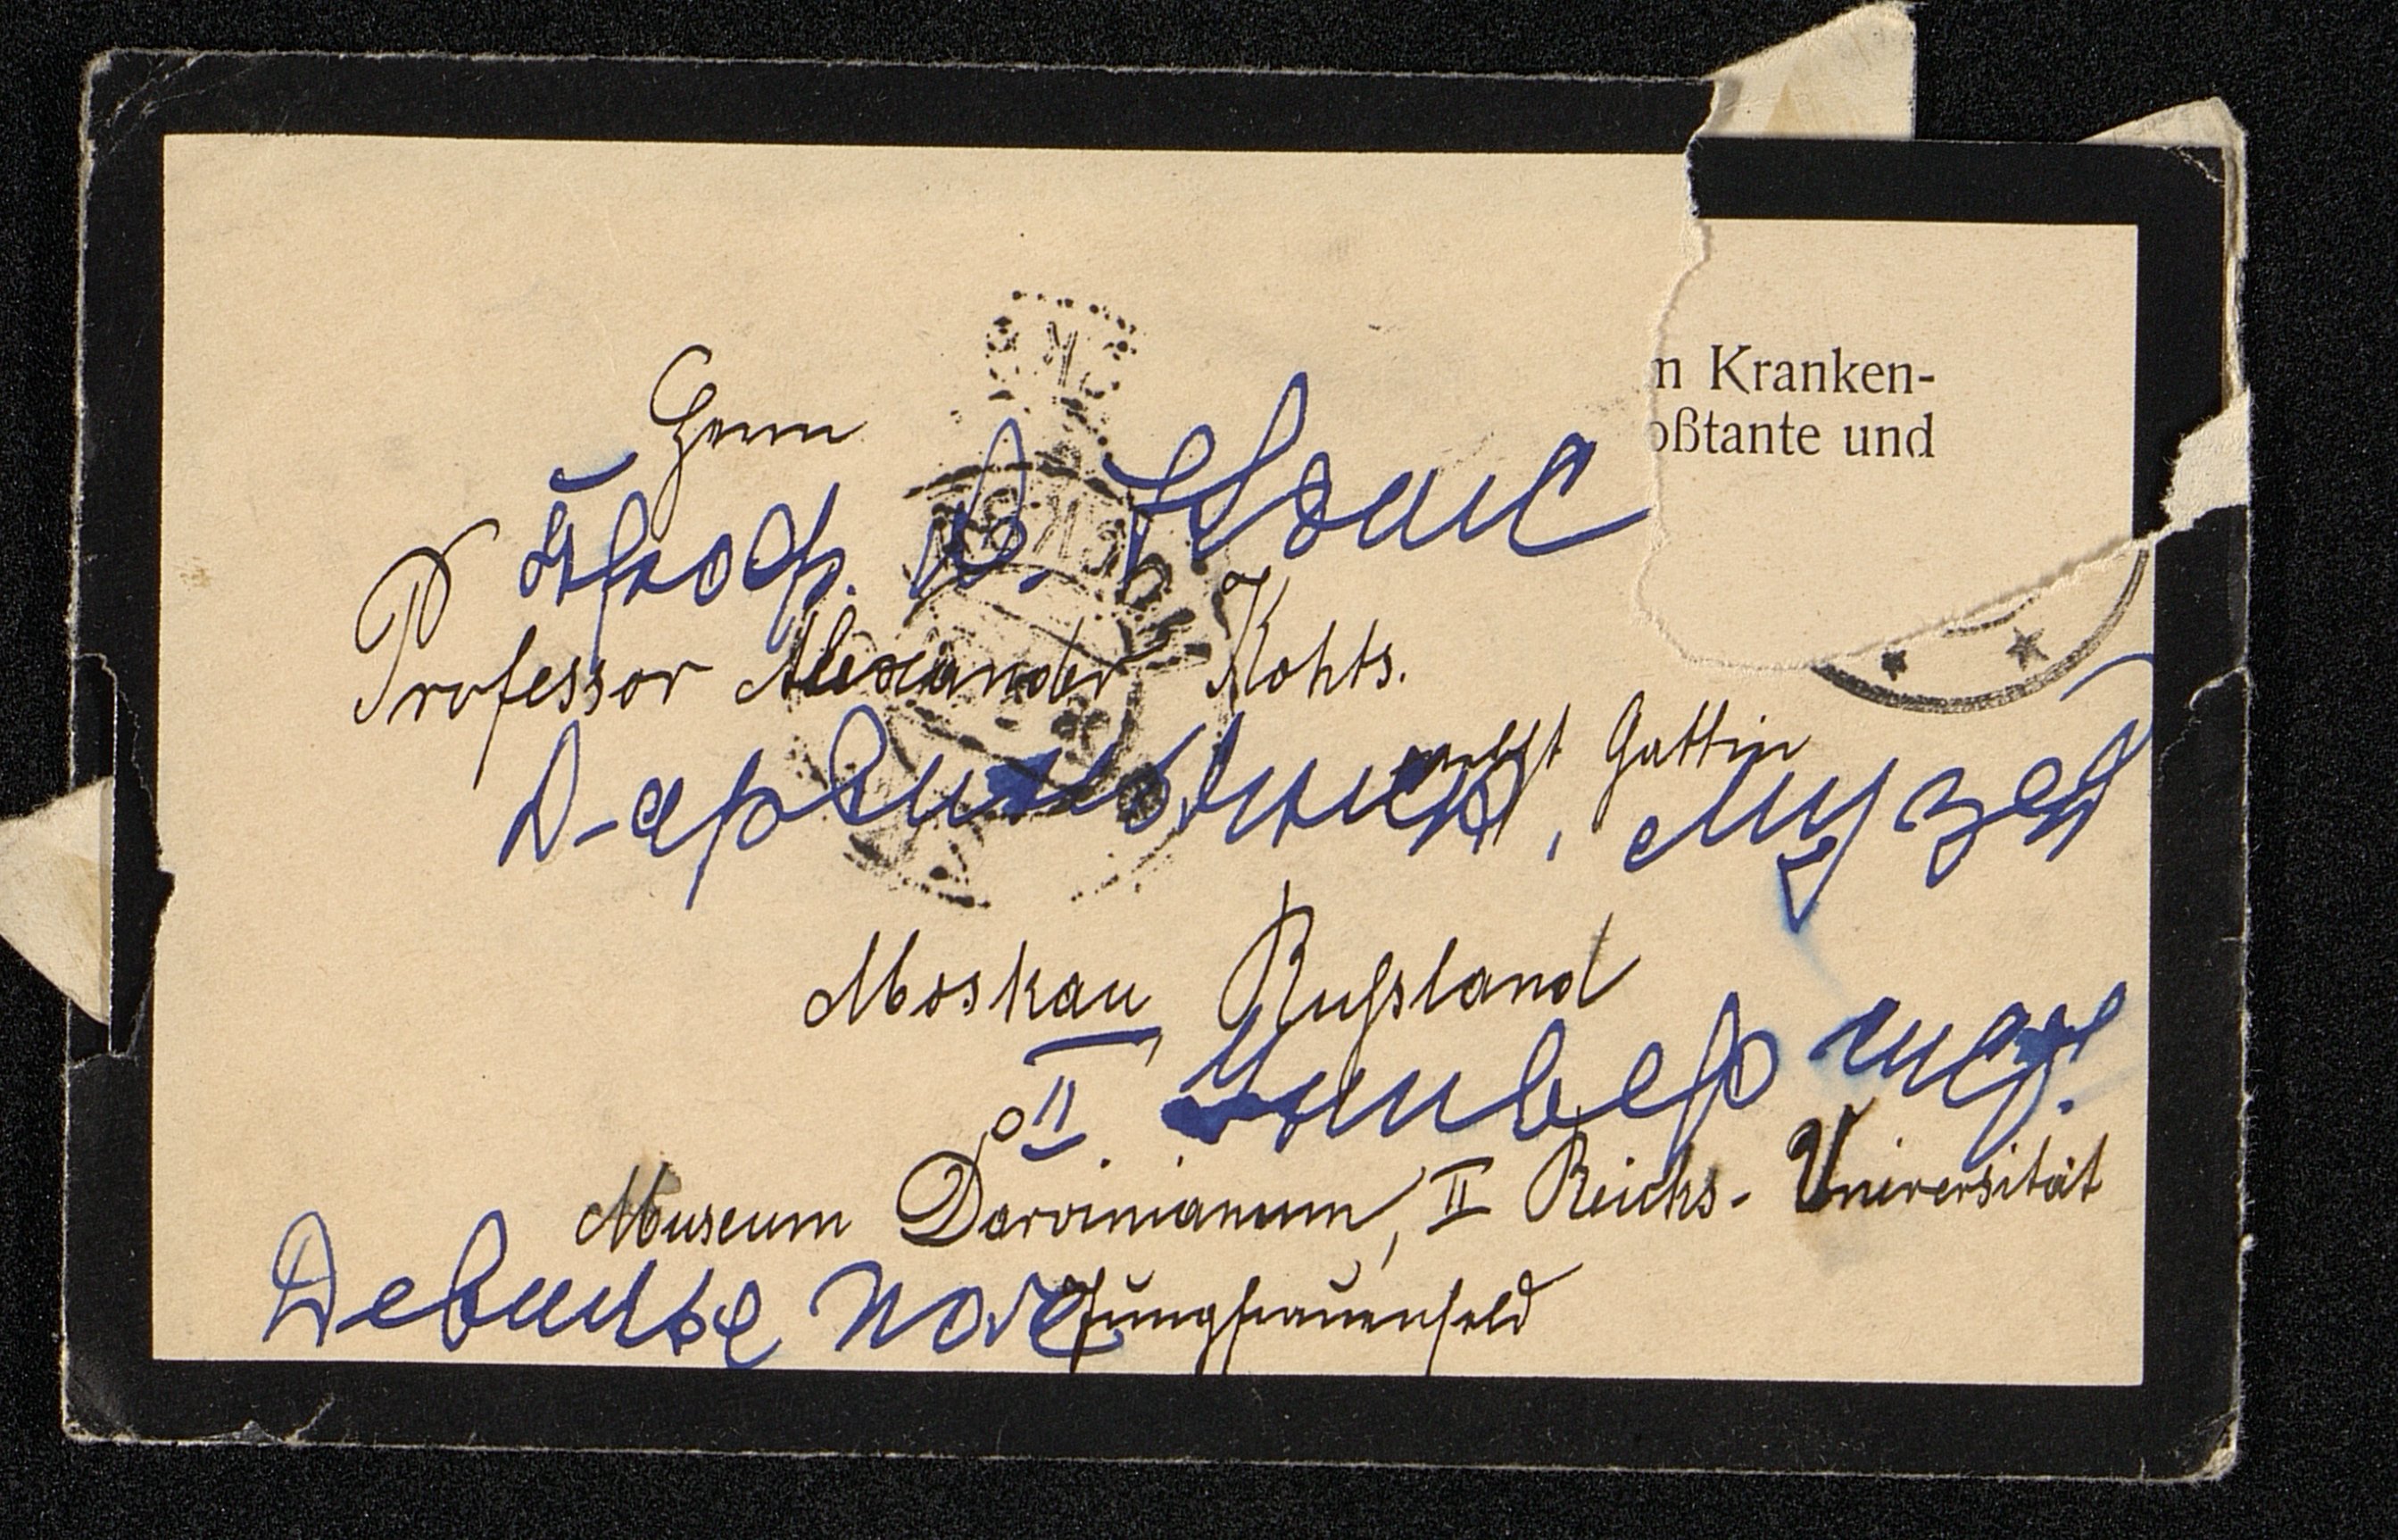 Herrn
Проф. А. Котс
Professor Alexander Kohts.
nebst Gattin
Дарвиновский, музей
Moskau Russland
II Универ
Museum Darwinianum, II Reichs-Universität
Девичье поле
Jungfrauenfeld
n Kranken-
oßtante und